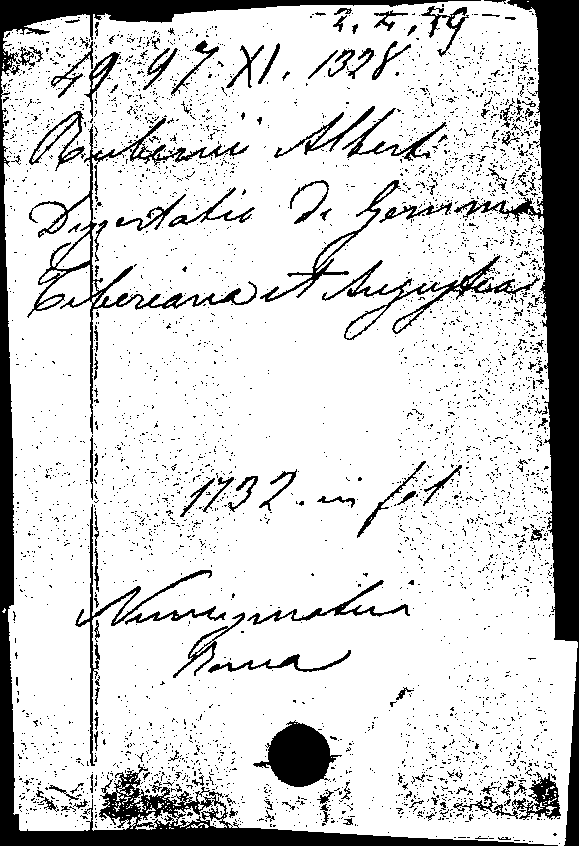 2. 4. 49
49. 97. XI. 1328.
Rubenii Alberti
Dissertatio De Gemma
Tiberiana et Augustea
1732. in fol.
Numismatica
Roma